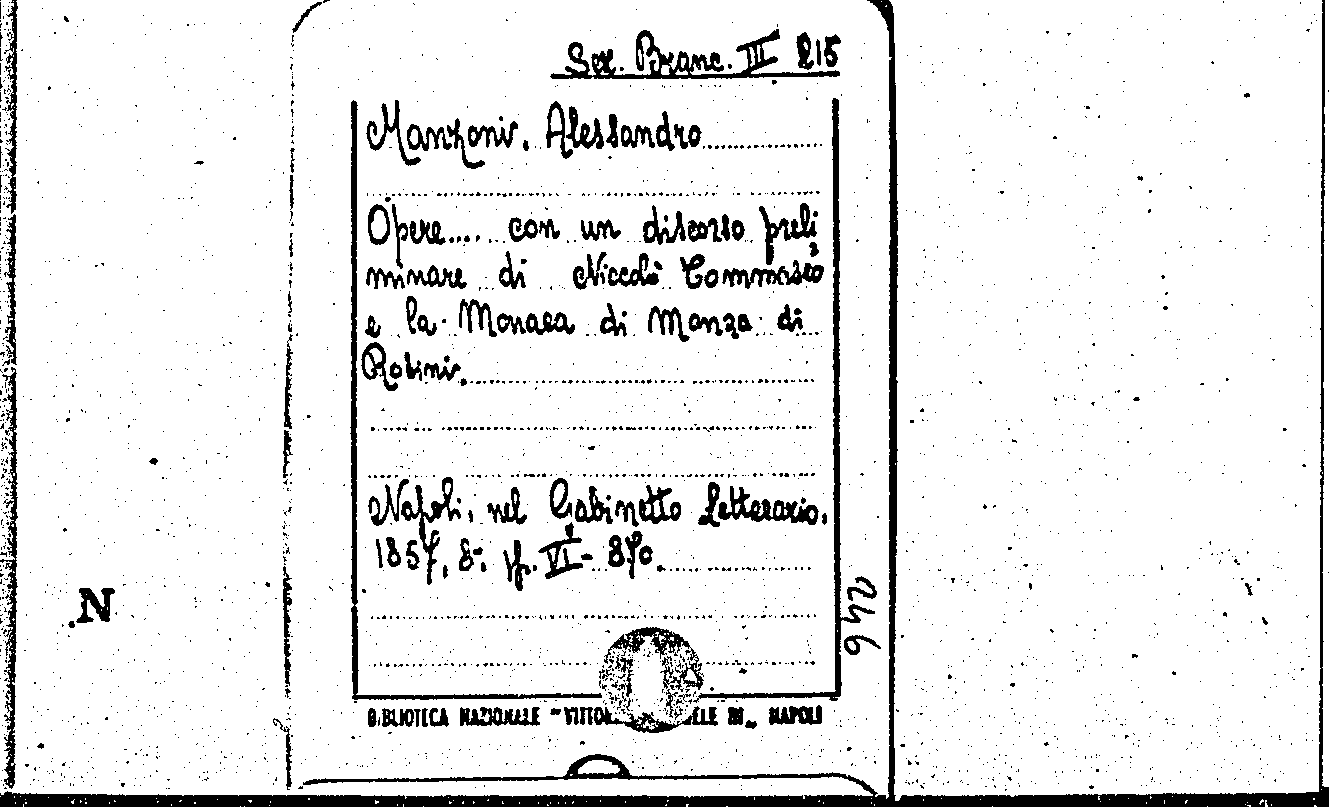 Sez. Branc. III 215
Manzoni, Alessandro
Opere.... con un discorso preli
minare di Niccolò Tommaseo
e la Monaca di Monza di
Rosini.
Napoli, nel Gabinetto Letterario,
1857, 8°. pp. VI - 870.
246
.N
BIBLIOTECA NAZIONALE "VITTOR ELE III„ NAPOLI